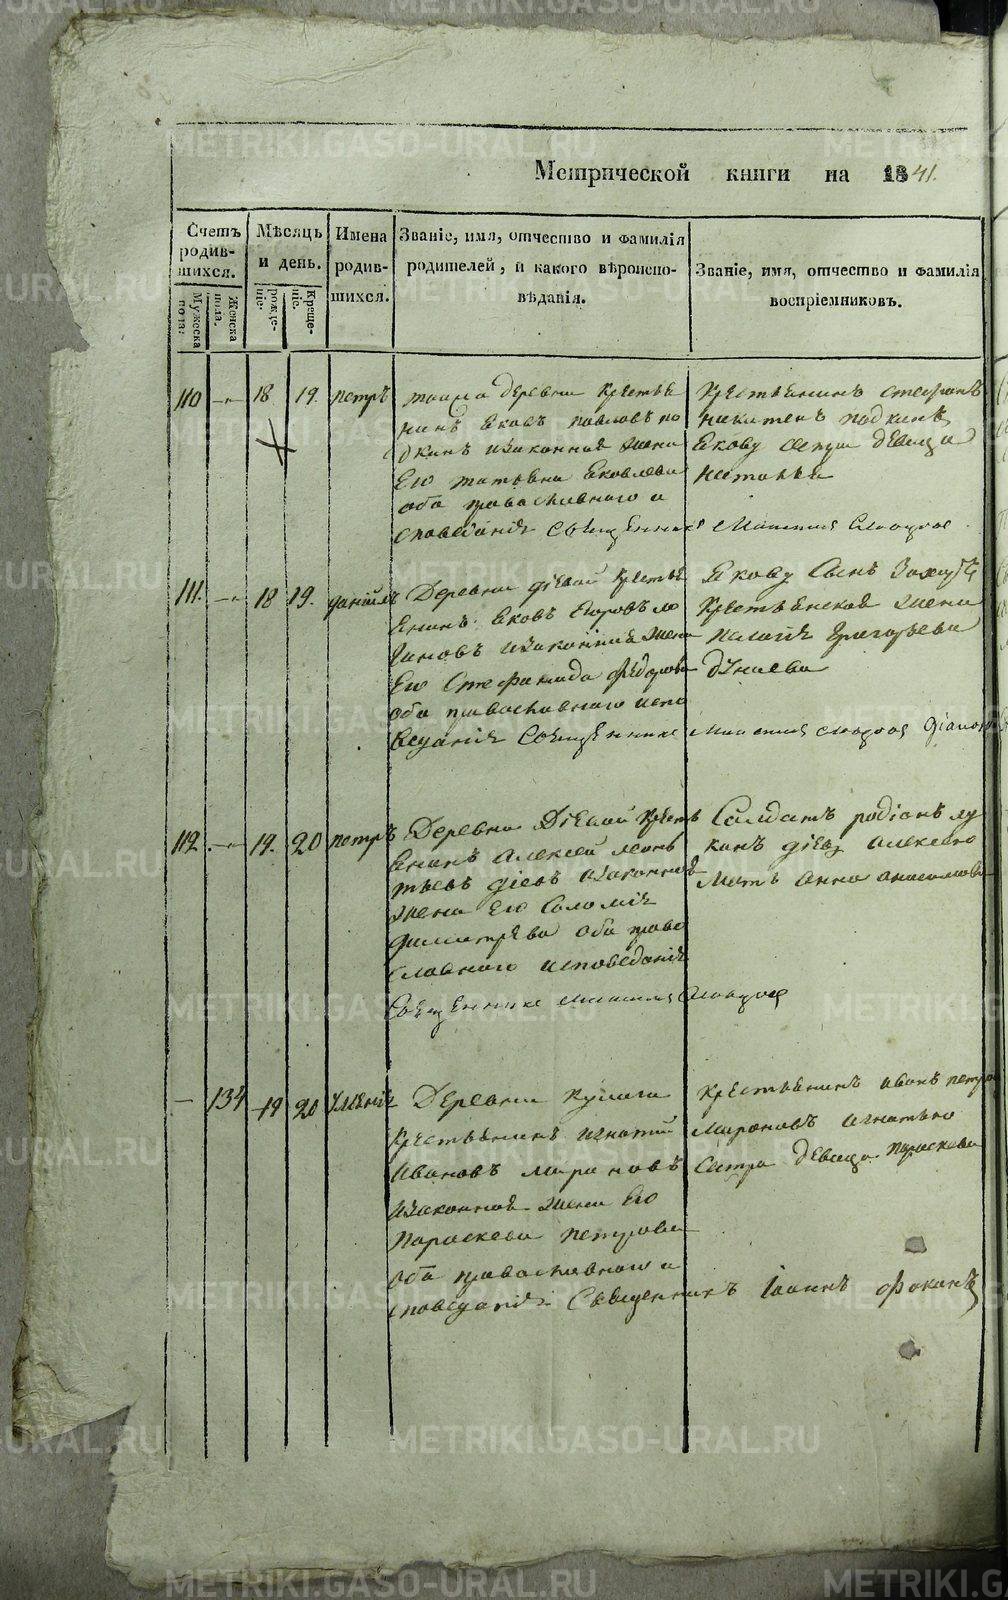 Метрической книги на 1841.
Счетъ родив-шихся.
Мужеска пола.
Женска пола.
Мѣсяцъ и день.
рожде-ніе.
Креще-ніе.
Имена родив-шихся.
Званіе, имя, отчество и фамилія
родителей, и какого вѣроиспо-
вѣданія.
Званіе, имя, отчество и фамилія
воспріемниковъ.
110 18 19. петръ
деревни крестья
нинъ Яковъ павловъ по
дкинъ изаконная жена
Его татьяна Яковлева
оба православнаго и
споведанія Священникъ
Крестьянинъ стефанъ
никитенъ подкинъ
Якову сестра девица
наталья
111. 18 19. даніилъ
Деревни діевой крестья
Енинъ Яковъ Егоровъ
изаконная жена
Его Стефанида федорова
оба православнаго испо
веданія Священникъ
Якову Сынъ
крестьянская жена
пелагія григорьева
дунаева
112 19. 20 петръ
Деревни Діевой крестья
Енинъ Алексей леонь
тьевъ діевъ изаконная
жена Его Соломія
димитрева оба право
славнаго исповеданія
Священникъ
Салдатъ родіонъ лу
кинъ діевъ алексею
мать анна
134 19 20
Деревни кулиги
крестьянинъ игнатий
ивановъ мироновъ
изаконная жена Его
параскева петрова
оба православнаго и
споведанія Священникъ Іоаннъ фоканъ
крестьянинъ иванъ петровъ
мироновъ игнатью
сестра девица параскева
METRIKI.GASO-URAL.RU